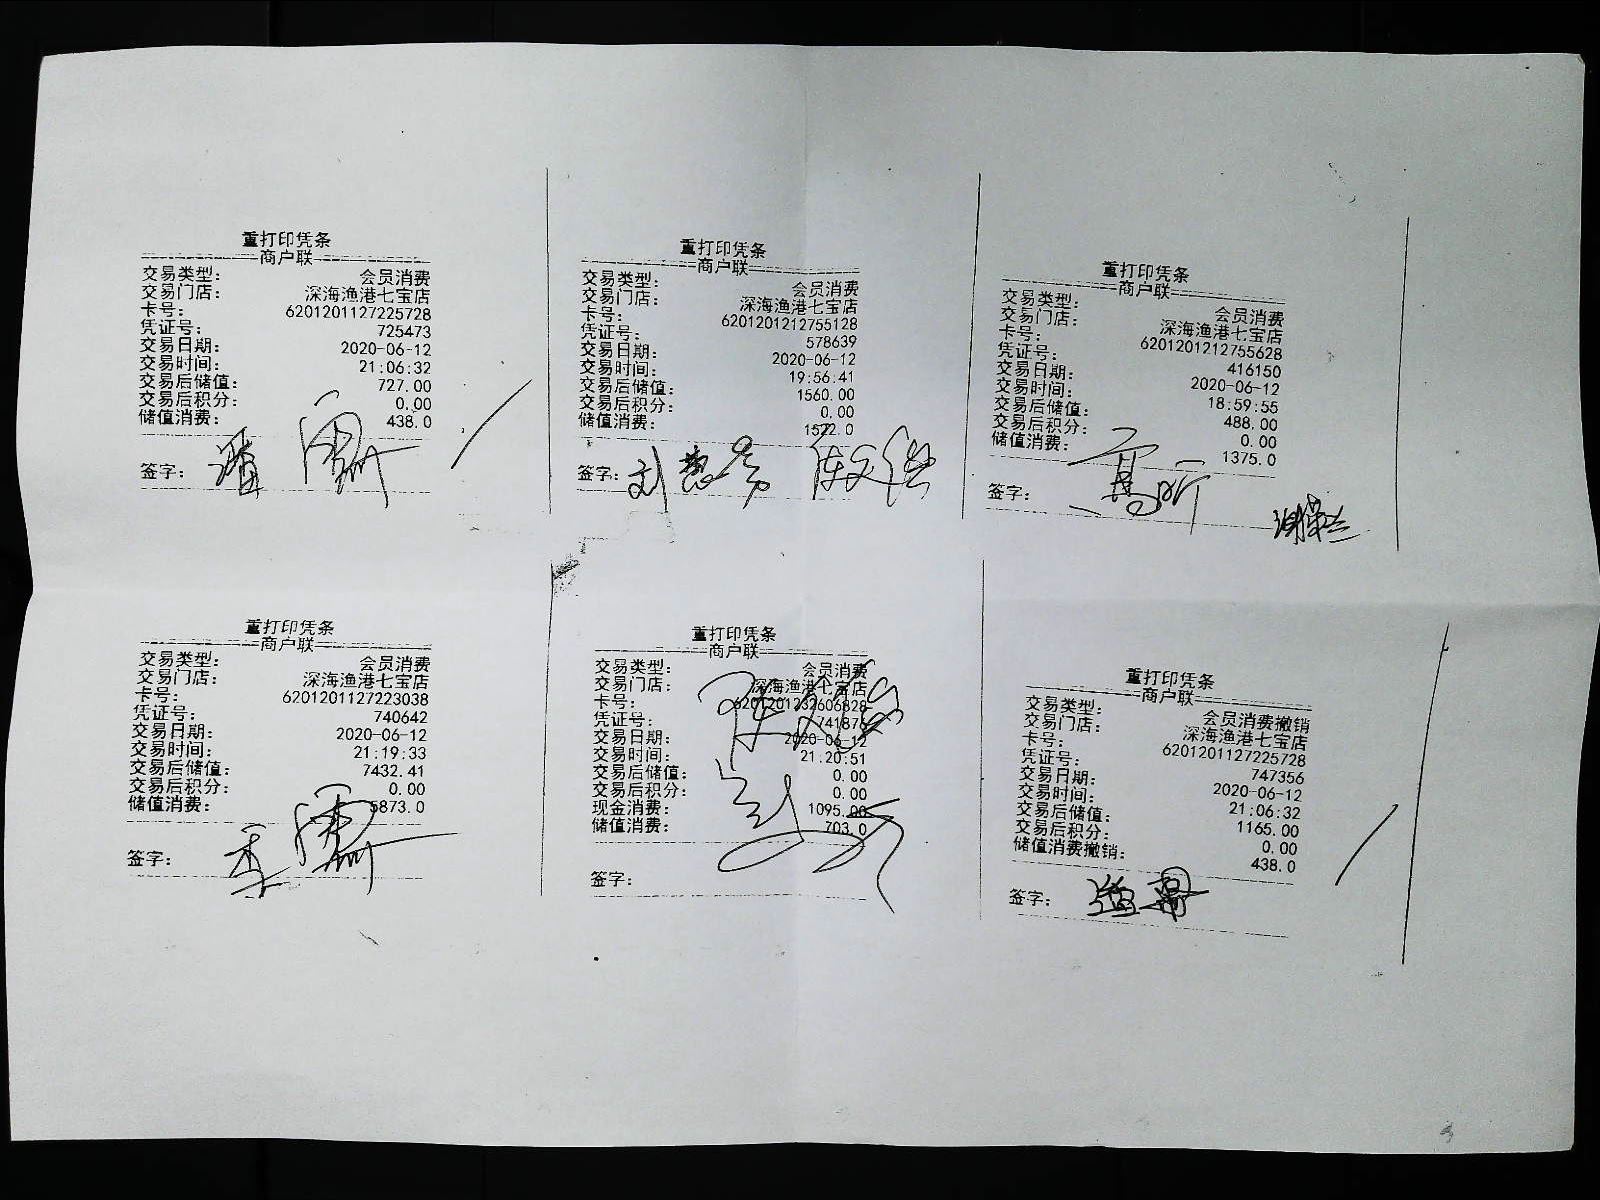 重打印凭条
商户联
交易类型： 会员消费
交易门店： 深海渔港七宝店
卡号： 6201201127225728
凭证号： 725473
交易日期： 2020-06-12
交易时间： 21:06:32
交易后储值： 727.00
交易后积分： 0.00
储值消费： 438.0
签字：
重打印凭条
商户联
交易类型： 会员消费
交易门店： 深海渔港七宝店
卡号： 6201201212755128
凭证号： 578639
交易日期： 2020-06-12
交易时间： 19:56:41
交易后储值： 1560.00
交易后积分： 0.00
储值消费：
签字： 刘
重打印凭条
商户联
交易类型： 会员消费
交易门店： 深海渔港七宝店
卡号： 6201201212755628
凭证号： 416150
交易日期： 2020-06-12
交易时间： 18:59:55
交易后储值： 488.00
交易后积分： 0.00
储值消费： 1375.0
签字：
重打印凭条
商户联
交易类型： 会员消费
交易门店： 深海渔港七宝店
卡号： 6201201127223038
凭证号： 740642
交易日期： 2020-06-12
交易时间： 21:19:33
交易后储值： 7432.41
交易后积分： 0.00
储值消费： 5873.0
签字：
重打印凭条
商户联
交易类型： 会员消费
交易门店： 深海渔港七宝店
卡号：
凭证号：
交易日期： 2020-06-12
交易时间： 21:20:51
交易后储值： 0.00
交易后积分： 0.00
现金消费： 1095.00
储值消费： 703.0
签字：
重打印凭条
商户联
交易类型： 会员消费撤销
交易门店： 深海渔港七宝店
卡号： 6201201127225728
凭证号： 747356
交易日期： 2020-06-12
交易时间： 21:06:32
交易后储值： 1165.00
交易后积分： 0.00
储值消费撤销： 438.0
签字：